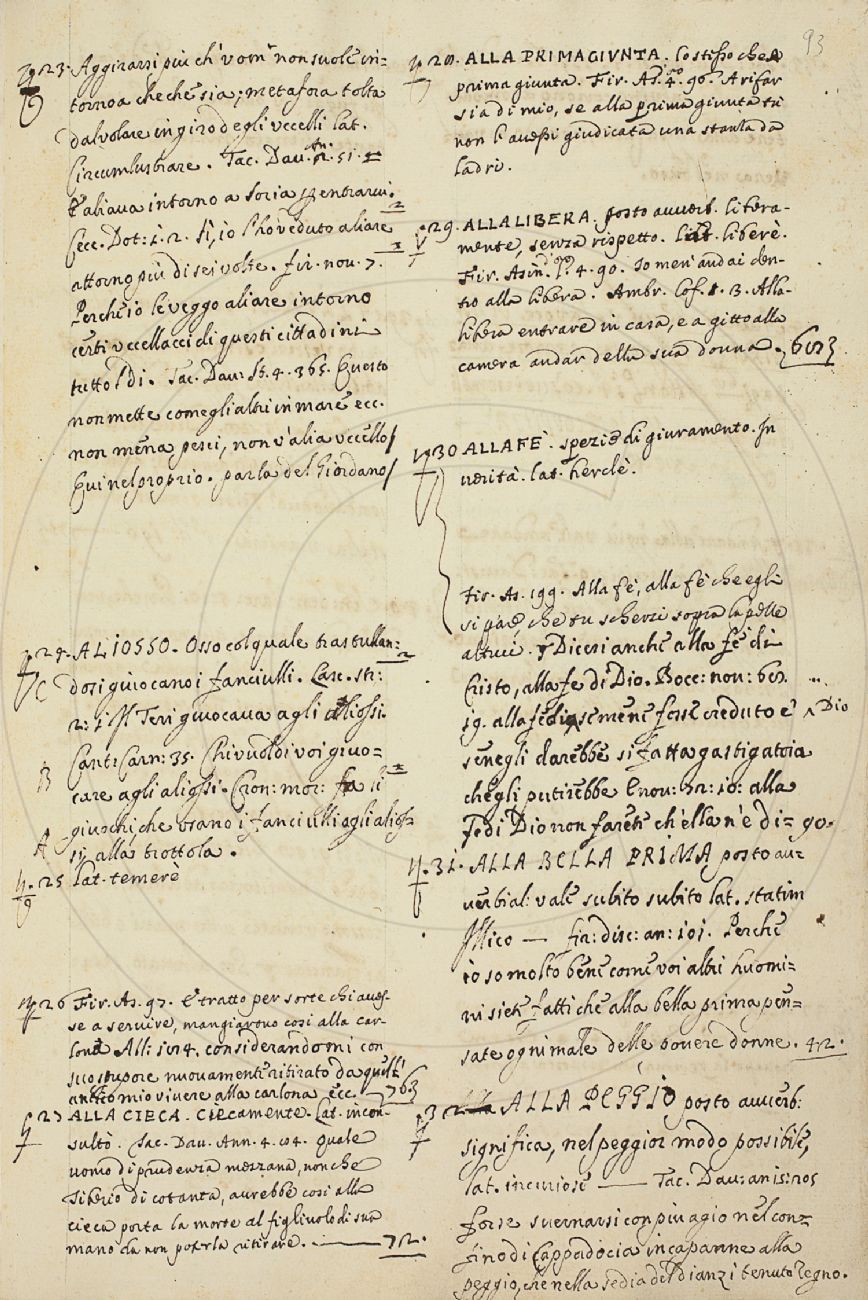 93
23. Aggirarsi più ch' uom' non suole in-
torno a che che sia; metafora tolta
dal volare in giro degli uccelli lat.
Circumlustrare. Tac. Dav. 51.
E aliava intorno a Soria p entrarvi.
Cecc. Dot: 1. 2. Sì, io l'hò veduto aliare
attorno più di sei volte. fir. nov. 7.
Perche io le veggo aliare intorno
certi uccellacci di questi cittadini
tutto 'l dì. Tac. Dav: St. 4. 365. Questo
non mette come gli altri in mare ecc.
non mena pesci, non v'alia uccello/
Qui nel proprio. parla del Giordano/
24. ALIOSSO. Osso col quale trastullan:
dosi giuocano i fanciulli. Lasc. str:
2: 1. Il Teri giuocava agli aliossi.
C
Cant: Carn: 35. Chi vuol di voi giuo-
B
care agli aliossi. Cron: mor: fa li
giuochi, che usano i fanciulli agli alios-
A
si alla trottola.
25 lat. temerè
26 Fir. As. 97. E tratto per sorte chi aves-
se a servire, mangiarono così alla car-
lona All: 104. considerandomi con
suo stupore nuovamente ritirato da quell'
antico mio vivere alla carlona ecc. 763
27 ALLA CIECA. Ciecamente. Lat. incon-
sultò. Tac. Dav. Ann. 4. 104. quale
uomo di prudenza mezzana, non che
Tiberio di cotanta, avrebbe così alla
cieca porta la morte al figliuolo di sua
mano da non poterla ritirare. 72.
28. ALLA PRIMA GIUNTA. lo stesso che a
prima giunta. Fir. As. 4. 90. A rifar
sia di mio, se alla prima giunta tu
non l'avessi giudicata una stanza da
ladri.
29. ALLA LIBERA. posto avverb. libera-
mente, senza rispetto. lat. liberè.
Fir. Asin. 4. 90. Io men' andai den-
tro alla libera. Ambr. Cof. 1. 3. Alla
libera entrare in casa, e a gitto alla
camera andar della sua donna. 603
30 ALLA FE'. spezie di giuramento. In
verità. lat. herclè.
Fir. As. 199. Alla fè, alla fè che egli
si pare, che tu scherzi sopra la pelle
altrui. Dicesi anche alla fè di
Cristo, alla fe di Dio. Bocc: nov: 60.
19. alla fe di se mene fosse creduto e' ^ Dio
senegli darebbe si fatta gastigatoia
che gli putirebbe E nov: 72: 10: alla
fe di Dio non farete ch'ella n'è di: go.
31. ALLA BELLA PRIMA posto av-
verbial: vale subito subito lat. statim
Illico — fir: disc: an: 101. Perche
io so molto bene come voi altri huomi=
ni siete fatti che alla bella prima pen=
sate ogni male delle povere donne. 42.
32 ALLA PEGGIO posto avverb:
significa, nel peggior modo possibile,
lat. incuriose — Tac. Dav: an: 15: 205
forse svernarsi con piu agio nel con=
fino di Cappadocia in capanne alla
peggio, che nella sedia del dianzi tenuto regno.